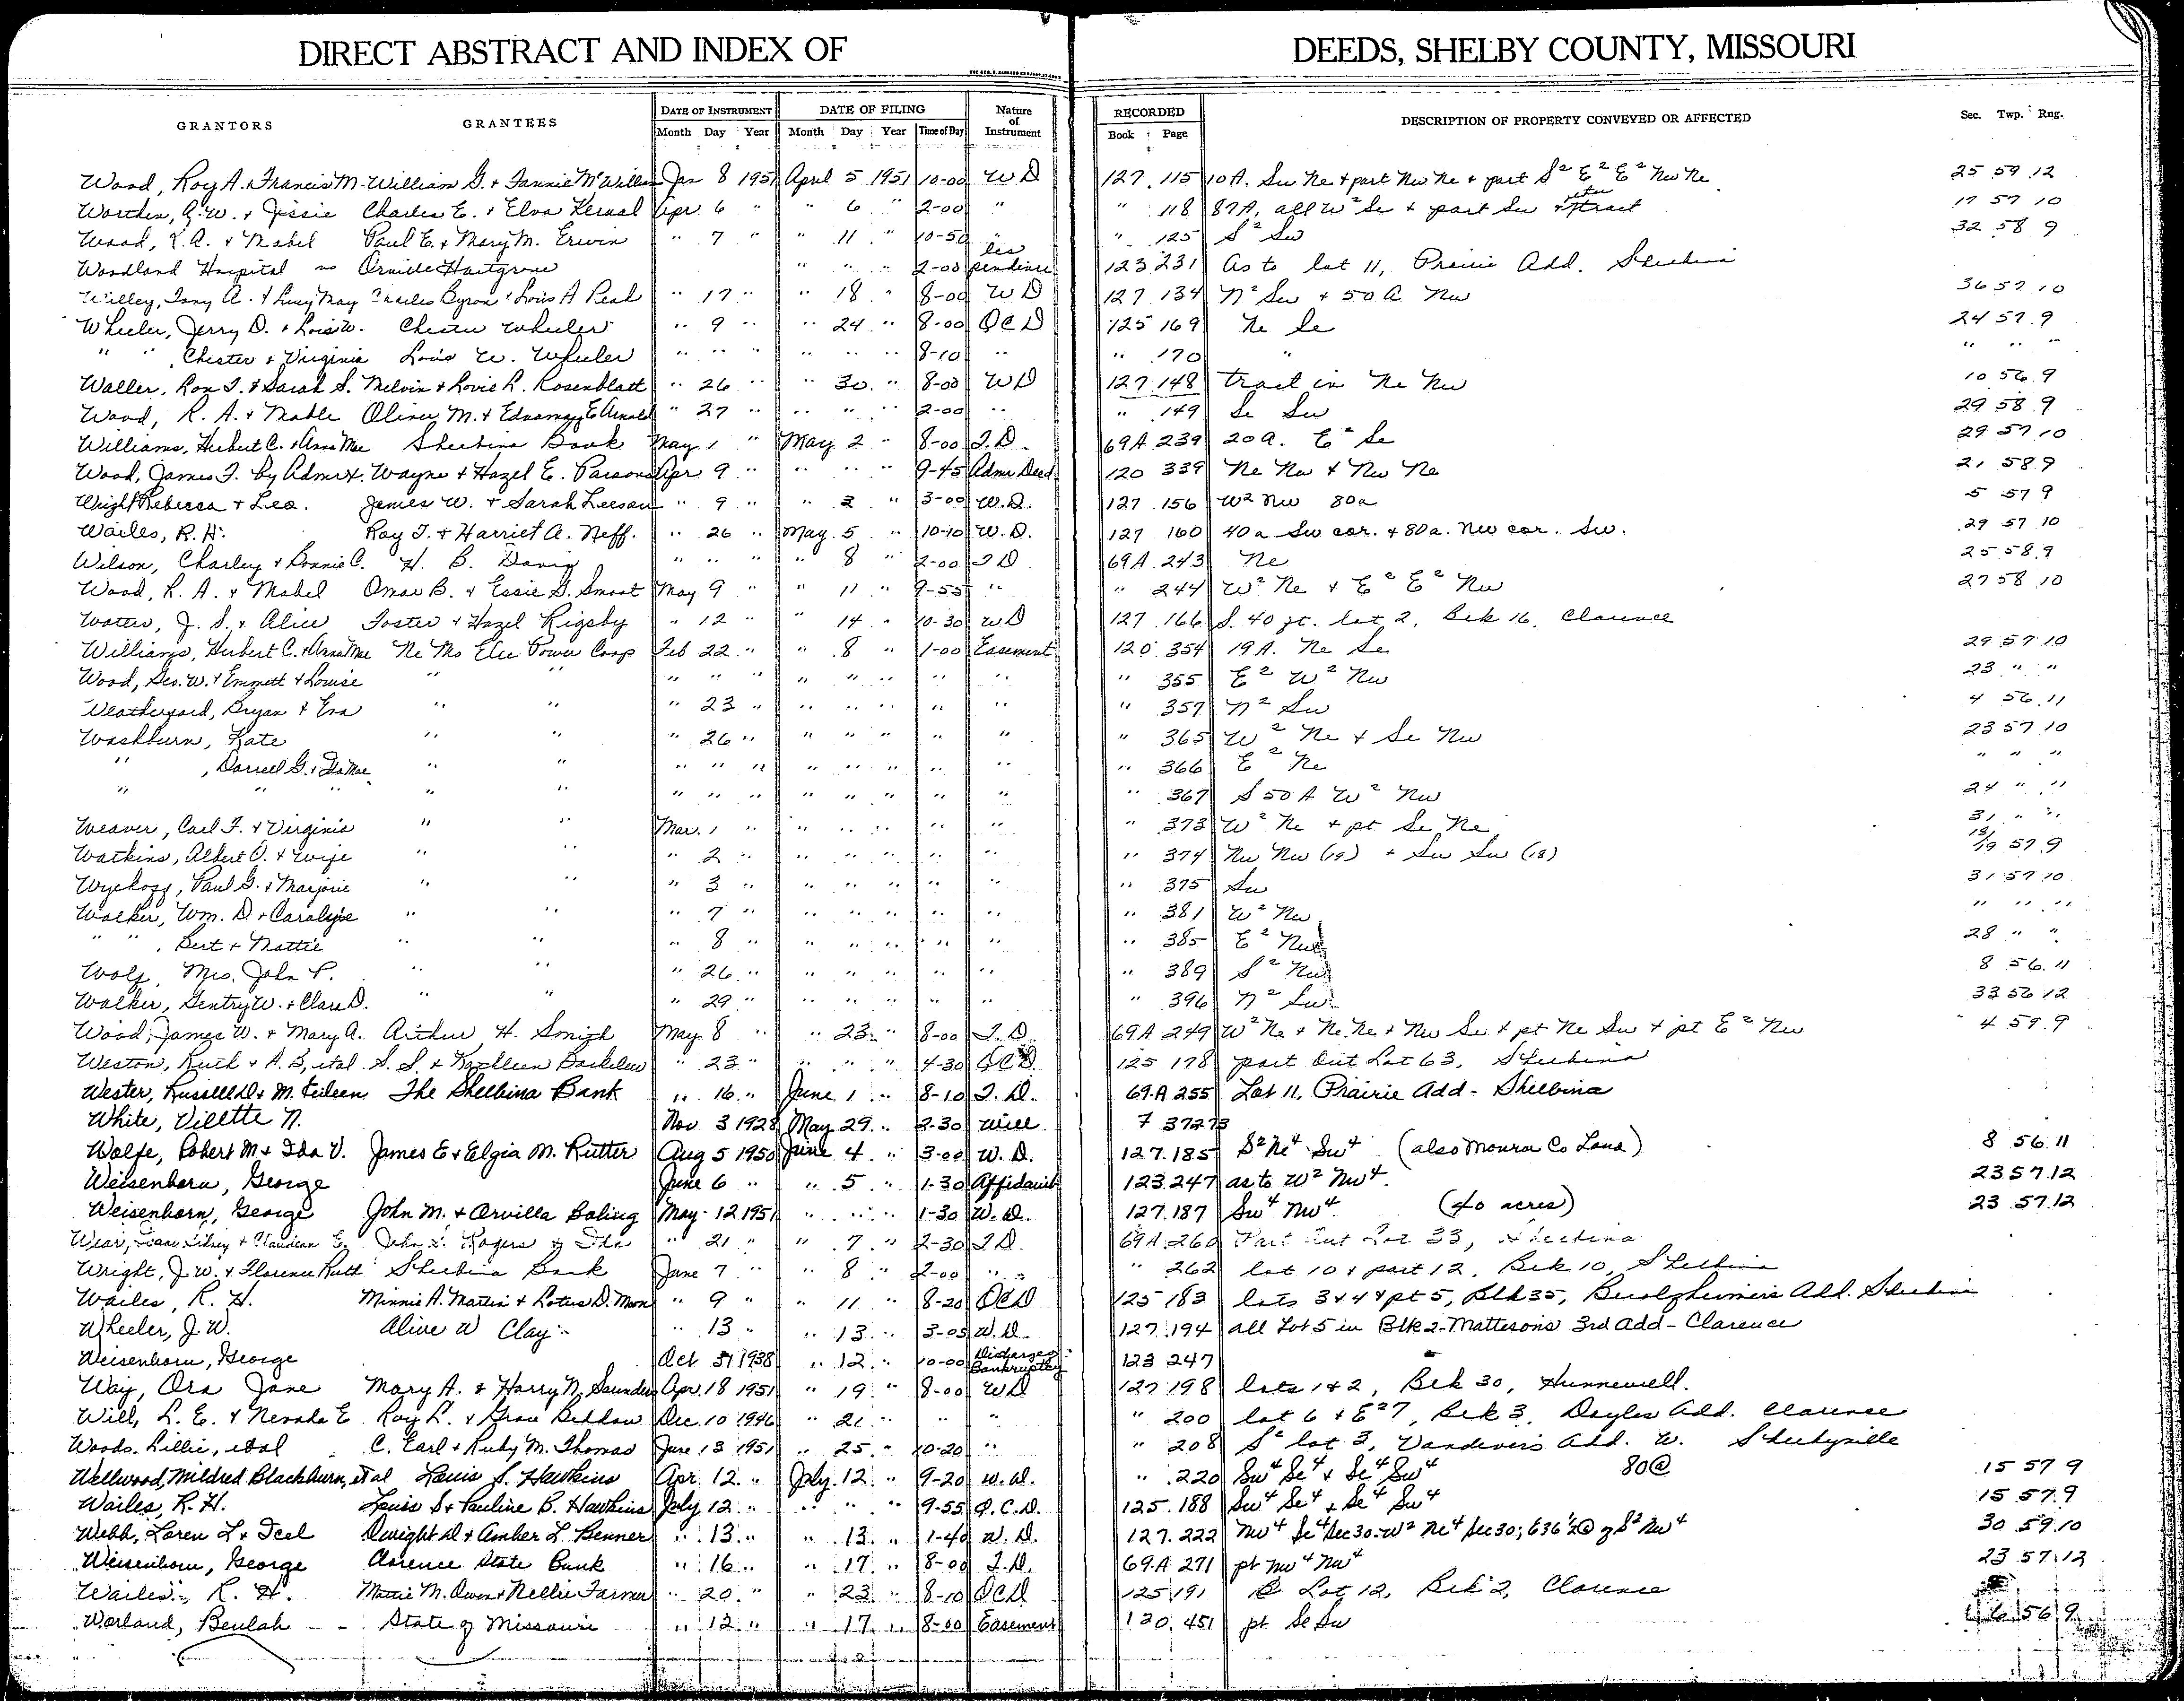 DIRECT ABSTRACT AND INDEX OF DEEDS, SHELBY COUNTY, MISSOURI
GRANTORS GRANTEES DATE OF INSTRUMENT DATE OF FILING Nature of Instrument RECORDED DESCRIPTION OF PROPERTY CONVEYED OR AFFECTED Sec. Twp. Rng.
Month Day Year Month Day Year Time of Day Book Page
Wood, Roy A. + Francis M. William G. + Fannie McWilliam Jan 8 1951 April 5 1951 10-00 W D 127 115 10 A. Sw Ne + part Nw Ne + part S² E² E² Nw Ne 25 59 12
Worthen, G. W. + Jessie Charles E. + Elva Kernal Apr. 6 " " 6 " 2-00 " " 118 87 A. all W² Se + part Sw + tract 17 57 10
Wood, R. A. + Mabel Paul E. + Mary M. Erwin " 7 " " 11 " 10-50 " " 125 S² Sw 32 58 9
Woodland Hospital vs Hartgrove " " " 2-00 Lis pendense 123 231 as to lot 11, Prairie Add. Shelbina
Willey, Tony A. + Lucy May Charles Byron + Lois A Peal " 17 " " 18 " 8-00 W D 127 134 N² Sw + 50 A Nw 36 57 10
Wheeler, Jerry D. + Lois W. Chester Wheeler " 9 " " 24 " 8-00 QCD 125 169 Ne Se 24 57 9
" " , Chester + Virginia Lois W. Wheeler " " " " " " 8-10 " " 170 " " " "
Waller, Roy T. + Sarah S. Melvin + Lovie L. Rosenblatt " 26 " " 30 " 8-00 WD 127 148 tract in Ne Nw 10 56 9
Wood, R. A. + Mable Oliver M. + Ednamay E Arnold " 27 " " " " 2-00 " " 149 Se Sw 29 58 9
Williams, Herbert C. + Anna Mae Shelbina Bank May 1 " May 2 " 8-00 T.D. 69A 239 20 a. E² Se 29 57 10
Wood, James T. by Admrx. Wayne + Hazel E. Parsons Apr 9 " " " " 9-45 Admr Deed 120 339 Ne Nw + Nw Ne 21 58 9
Wright Rebecca + Leo. James W. + Sarah Leeson " 9 " " 2 " 3-00 W.D. 127 156 W² Nw 80a 5 57 9
Wailes, R. H. Ray T. + Harriet A. Neff. " 26 " May 5 " 10-10 W.D. 127 160 40 a Sw cor. + 80 a. Nw cor. Sw. 29 57 10
Wilson, Charley + Bonnie C. H. B. Davis " " " " 8 " 2-00 T D 69A 243 Ne 25 58 9
Wood, R. A. + Mabel Omar B. + Essie G. Smoot May 9 " " 11 " 9-55 " " 244 W² Ne + E² E² Nw 27 58 10
Watts, J. S. + Alice Foster + Hazel Rigsby " 12 " " 14 " 10-30 WD 127 166 S. 40 ft. lot 2, Blk 16, Clarence
Williams, Herbert C. + Anna Mae Ne Mo Elec Power Coop Feb 22 " " 8 " 1-00 Easement 120 354 19 A. Ne Se 29 57 10
Wood, Geo. W. + Emmett + Louise " " " " " " " " " " " 355 E² W² Nw 23 " "
Weatherford, Bryan + Eva " " " 23 " " " " " " " 357 N² Sw 4 56 11
Washburn, Kate " " " 26 " " " " " " " 365 W² Ne + Se Nw 23 57 10
" , Darrell G. + Ila Mae " " " " " " " " " " " 366 E² Ne " " "
" " " " " " " " " " " " " " 367 S 50 A W² Nw 24 " "
Weaver, Carl F. + Virginia " " Mar. 1 " " " " " " " 373 W² Ne + pt Se Ne 31 " "
Watkins, Albert O. + wife " " " 2 " " " " " " " 374 Nw Nw (19) + Sw Sw (18) 18/19 57 9
Wyckoff, Paul G. + Marjorie " " " 3 " " " " " " " 375 Sw 31 57 10
Walker, Wm. D. + Carolyne " " " 7 " " " " " " " 381 W² Nw " " "
" " , Bert + Mattie " " " 8 " " " " " " " 385 E² Nw 28 " "
Wolf, Mrs. John P. " " " 26 " " " " " " " 389 S² Nw 8 56 11
Walker, Gentry W. + Clara D. " " " 29 " " " " " " " 396 N² Sw 33 56 12
Wood, James W. + Mary A. Arthur H. Smith May 8 " " 23 " 8-00 T.D. 69A 249 W² Ne + Ne Ne + Nw Se + pt Ne Sw + pt E² Nw 4 59 9
Weston, Ruth + A. B, etal S. S. + Kathleen " 23 " " " " 4-30 QCD 125 178 part Out Lot 63, Shelbina
Wester, Russell D + M. Eileen The Shelbina Bank " 16 " June 1 " 8-10 T.D. 69-A 255 Lot 11, Prairie Add - Shelbina
White, Villette N. Nov 3 1928 May 29 " 2-30 Will 7 372
Wolfe, Robert M + Ida V. James E + Elgia M. Rutter Aug 5 1950 June 4 " 3-00 W.D. 127 185 S² Ne⁴ Sw⁴ (also Monroe Co Land) 8 56 11
Weisenborn, George June 6 " " 5 " 1-30 Affidavit 123 247 as to W² Nw⁴ 23 57 12
Weisenborn, George John M. + Orvilla Boling May 12 1951 " " " 1-30 W.D. 127 187 Sw⁴ Nw⁴ (40 acres) 23 57 12
Wear, Isaac Sidney + Claudean E. John L. Rogers " 21 " " 7 " 2-30 T.D. 69A 260 Part Out Lot 33, Shelbina
Wright, J. W. + Florence Ruth Shelbina Bank June 7 " " 8 " 2-00 " " 262 lot 10 + part 12, Blk 10, Shelbina
Wailes, R. H. Minnie A. Martin + Lotus D. Moon " 9 " " 11 " 8-20 QCD 125 183 lots 3 + 4 + pt 5, Blk 35, Add. Shelbina
Wheeler, J. W. Aline W Clay " 13 " " 13 " 3-05 W.D. 127 194 all Lot 5 in Blk 2 - Mattesons 3rd Add - Clarence
Weisenborn, George Oct 31 1938 " 12 " 10-00 Discharge Bankruptcy 123 247
Way, Ora Jane Mary A. + Harry N. Saunders Apr. 18 1951 " 19 " 8-00 WD 127 198 lots 1 + 2, Blk 30, Hunnewell.
Will, L. E. + Nevada E. Roy L. + Grace Beddow Dec. 10 1946 " 21 " " " " 200 lot 6 + E² 7, Blk 3, Doyles Add. Clarence
Woods, Lillie, etal C. Earl + Ruby M. Thomas June 13 1951 " 25 " 10-20 " " 208 S² lot 3, Vandivers Add. W. Shelbyville
Wellwood, Mildred Blackburn, et al Louis S. Hawkins Apr. 12 " July 12 " 9-20 W.D. " 220 Sw⁴ Se⁴ + Se⁴ Sw⁴ 80@ 15 57 9
Wailes, R. H. Louis S + Pauline B. Hawkins July 12 " " " " 9-55 Q.C.D. 125 188 Sw⁴ Se⁴ + Se⁴ Sw⁴ 15 57 9
Webb, Loren L + Icel Dwight D + Amber L Benner " 13 " " 13 " 1-40 W.D. 127 222 Nw⁴ Se⁴ Sec 30 - W² Ne⁴ Sec 30; E 36½@ of S² Nw⁴ 30 59 10
Weisenborn, George Clarence State Bank " 16 " " 17 " 8-00 T.D. 69-A 271 pt Nw⁴ Nw⁴ 23 57 12
Wailes, R. H. Mattie M. Owen + Nellie Farmer " 20 " " 23 " 8-10 QCD 125 191 Lot 12, Blk 2, Clarence
Worland, Beulah State of Missouri " 12 " " 17 " 8-00 Easement 120 451 pt Se Sw 6 56 9